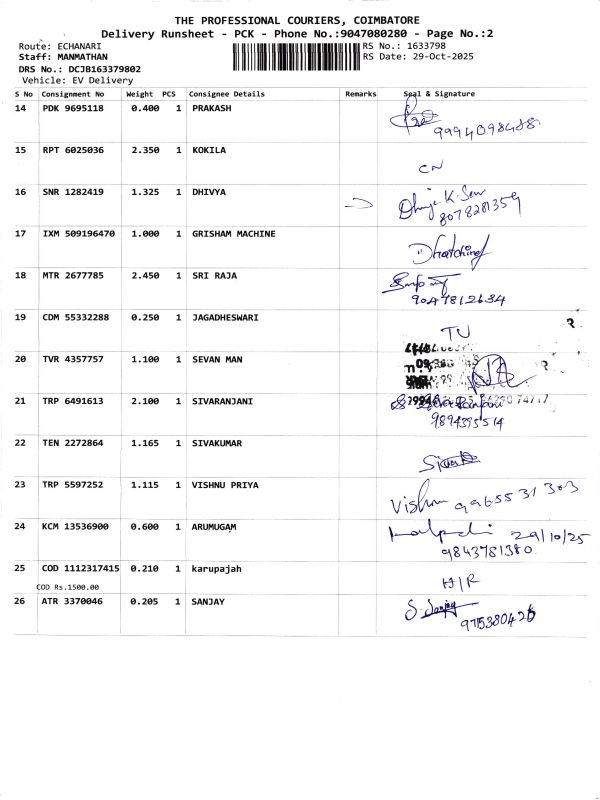 THE PROFESSIONAL COURIERS, COIMBATORE
Delivery Runsheet - PCK - Phone No.:9047080280 - Page No.:2
Route: ECHANARI RS No.: 1633798
Staff: MANMATHAN RS Date: 29-Oct-2025
DRS No.: DCJB163379802
Vehicle: EV Delivery
S No Consignment No Weight PCS Consignee Details Remarks Seal & Signature
14 PDK 9695118 0.400 1 PRAKASH
15 RPT 6025036 2.350 1 KOKILA
CN
16 SNR 1282419 1.325 1 DHIVYA
8078281359
17 IXM 509196470 1.000 1 GRISHAM MACHINE
18 MTR 2677785 2.450 1 SRI RAJA
9047812634
19 CDM 55332288 0.250 1 JAGADHESWARI
TU
20 TVR 4357757 1.100 1 SEVAN MAN
21 TRP 6491613 2.100 1 SIVARANJANI
9894395514
22 TEN 2272864 1.165 1 SIVAKUMAR
23 TRP 5597252 1.115 1 VISHNU PRIYA
Vishnu 9965531303
24 KCM 13536900 0.600 1 ARUMUGAM
29/10/25
9843781380
25 COD 1112317415 0.210 1 karupajah
COD Rs.1500.00
H/R
26 ATR 3370046 0.205 1 SANJAY
S. Sanjay
975380426